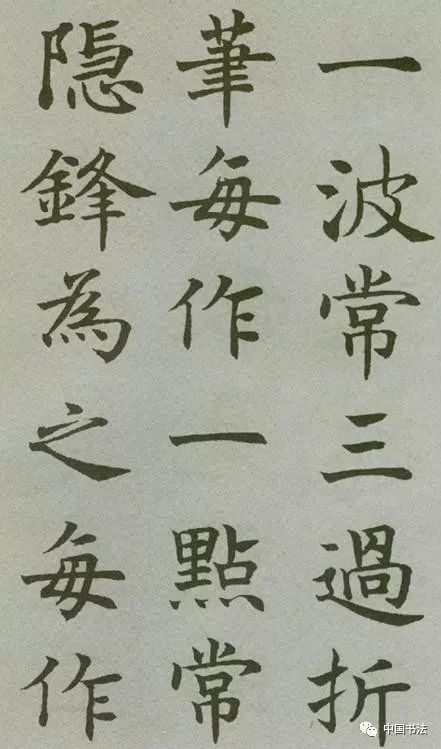 一波常三過折
筆每作一點常
隱鋒為之每作
中国书法